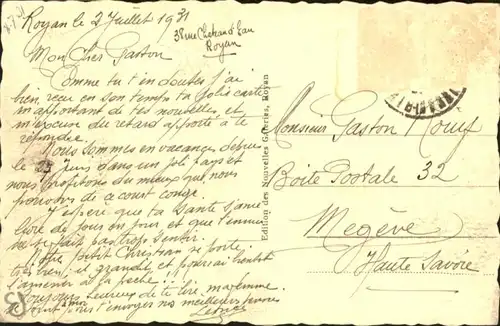 Royan le 2 Juillet 1931
Royan
Mon Cher Gaston
Comme tu t'en doutes j'ai
bien reçu en son temps ta jolie carte
m'apportant de tes nouvelles et
m'excuse du retard apporté à te
répondre.
Nous sommes en vacances depuis
le 25 Juin dans un joli pays et
nous profitons du mieux que nous
pouvons de ce court congé.
J'espère que ta santé s'amé
liore de jour en jour et que l'ennui
ne se fait pas trop sentir.
Notre petit Christian se porte
très bien, il grandit et pourra bientôt
s'amener à la pêche!
Toujours heureux de te lire, ma femme
nos meilleures
Edition des Nouvelles Galeries, Royan
Monsieur Gaston
Boite Postale 32
Megève
Haute Savoie